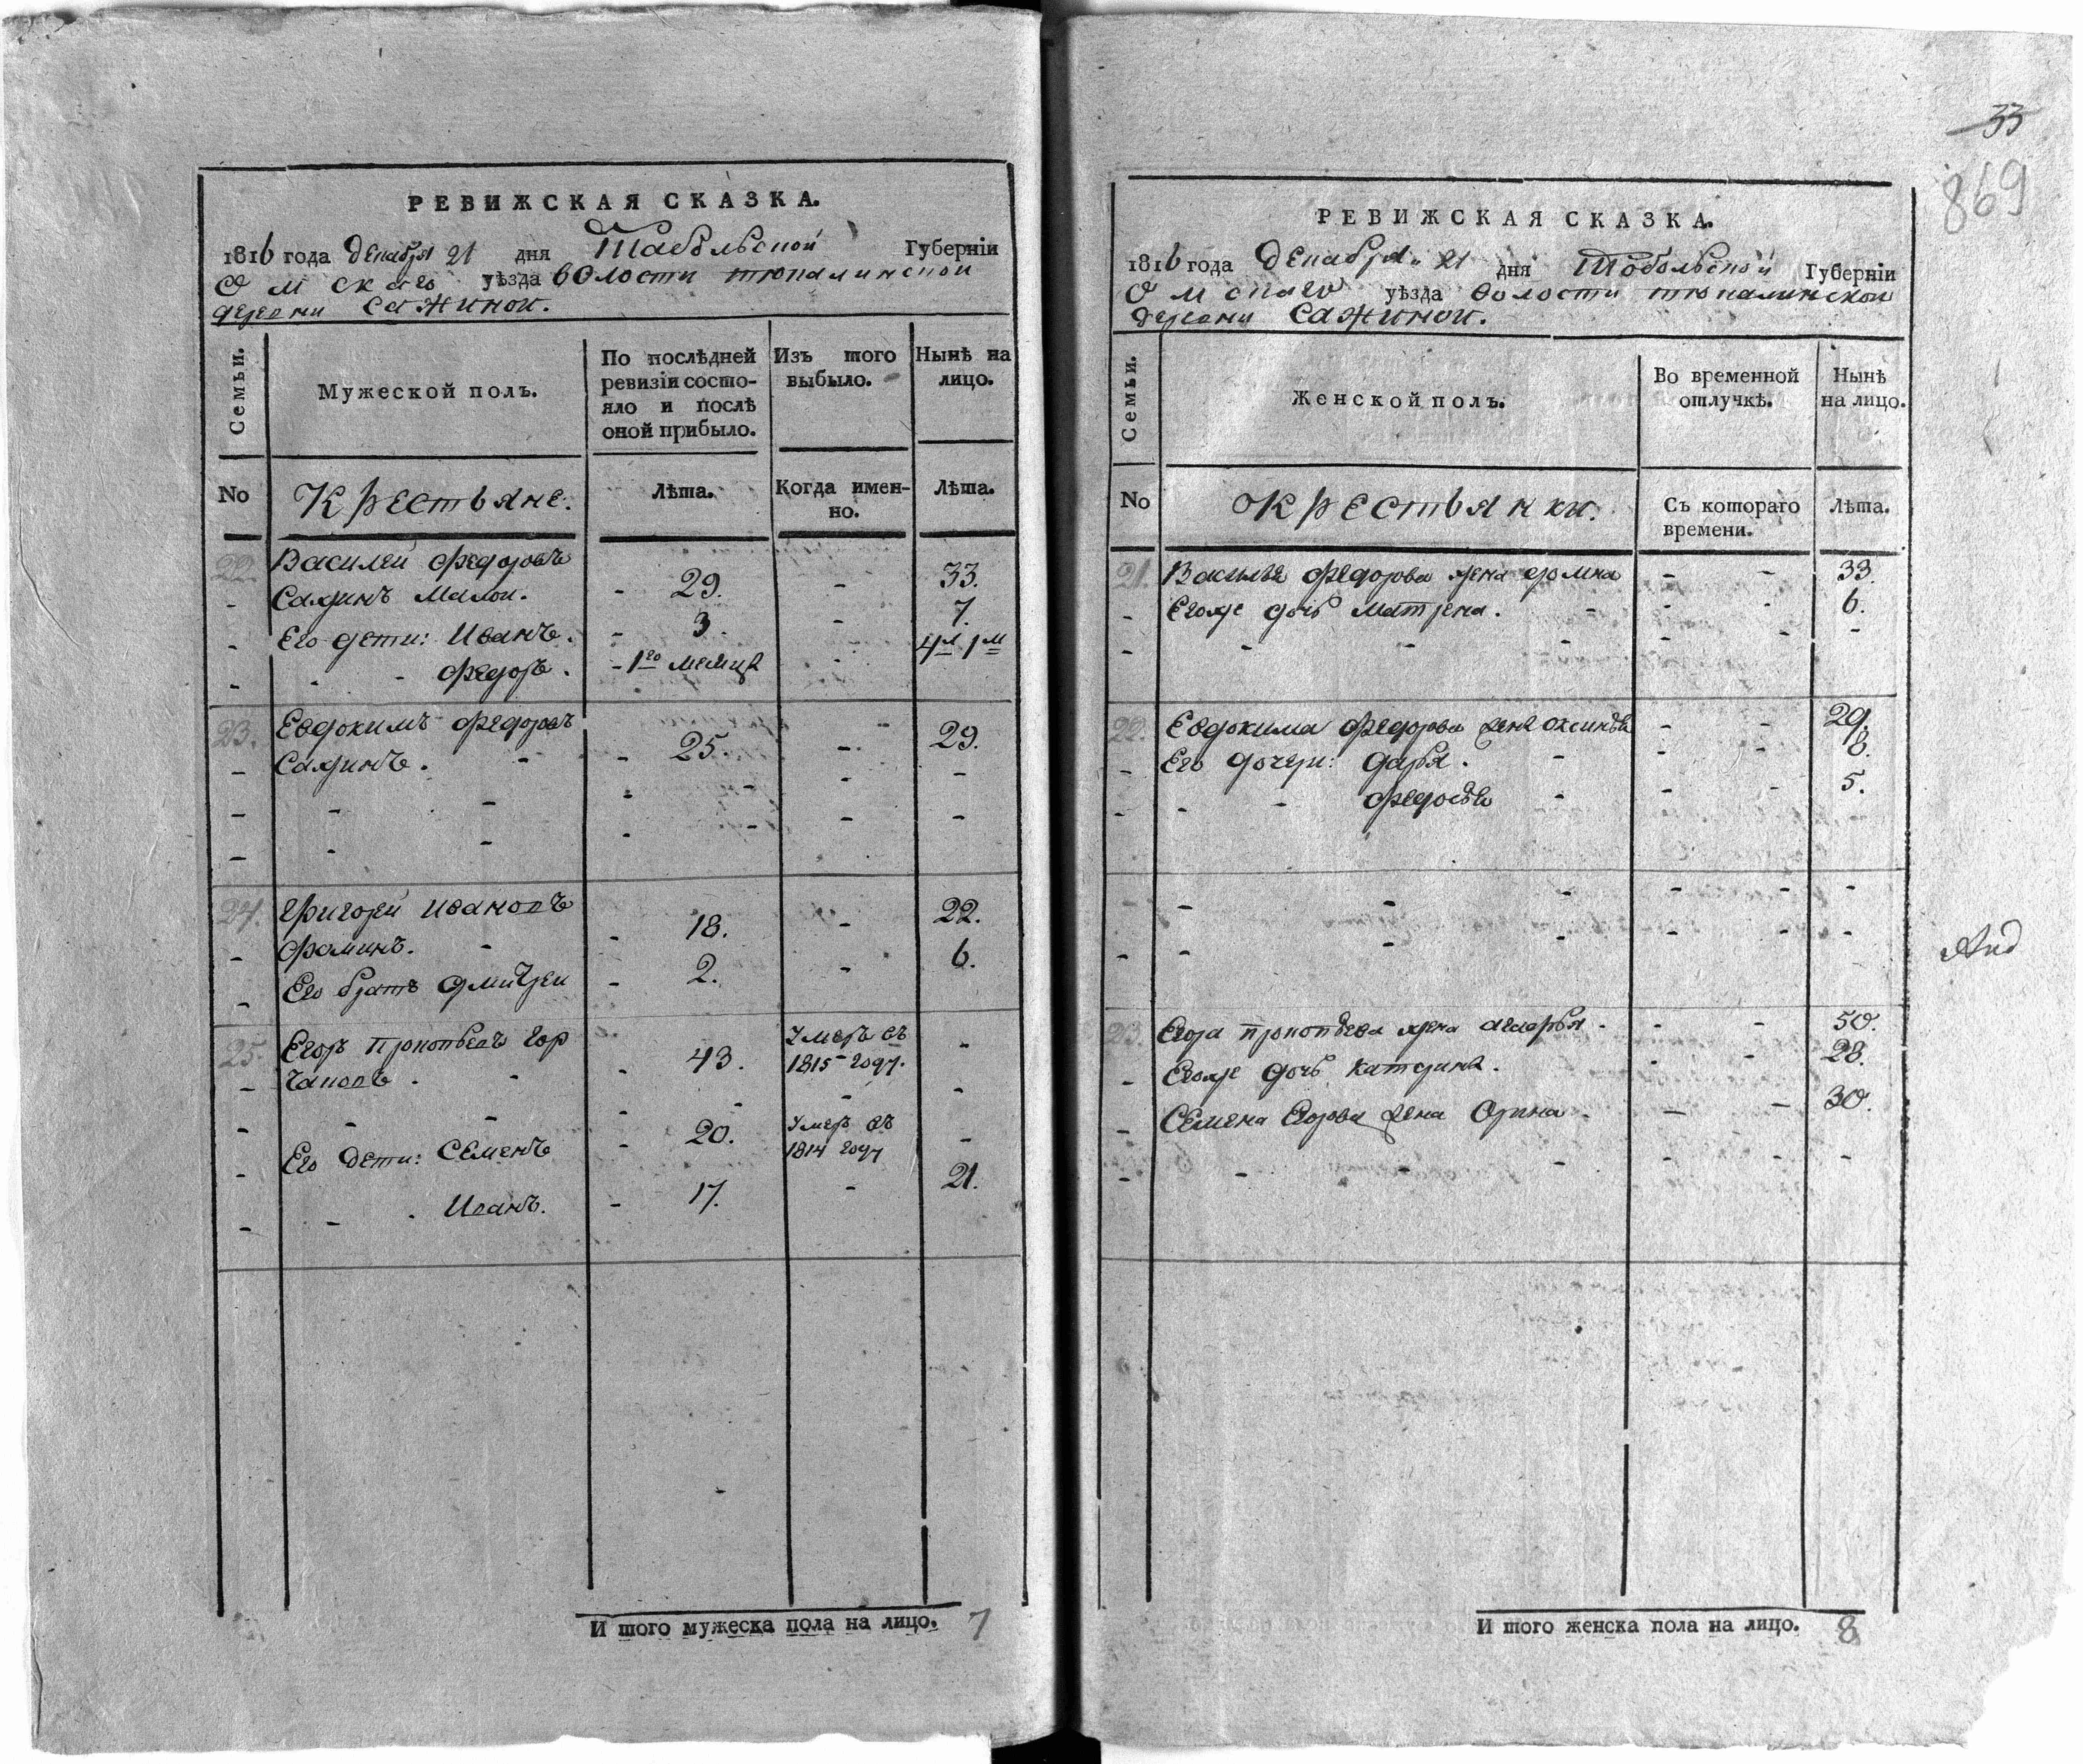 РЕВИЖСКАЯ СКАЗКА.
1816 года Декабря 21 дня Табольской Губерніи
Омскаго уѣзда волости тюкалинской
деревни Сажиной.
Семьи.
Мужеской полъ.
По послѣдней ревизіи состо-
яло и послѣ
оной прибыло.
Изъ того
выбыло.
Нынѣ на
лицо.
No
Крестьяне:
Лѣта.
Когда имен-
но.
Лѣта.
22. Василей Федоровъ
- Сажинъ Малой. - 29. - 33.
- Его дети: Иванъ. - 3. - 7.
- - - Федоръ. - 1го месяца - 4л 1м
23. Евдокимъ Федоровъ
- Сажинъ. - - 25. - 29.
24. Григорей Ивановъ
- Фоминъ. - - 18. - 22.
- Его братъ Дмитрей - 2. - 6.
25. Егоръ Прокопьевъ Гор
- чаковъ. - - 43. Умеръ въ 1815 году. -
- Его дети: Семенъ - 20. Умеръ въ 1814 году -
- - - Иванъ. - 17. - 21.
И того мужеска пола на лицо. 7
33
869
РЕВИЖСКАЯ СКАЗКА.
1816 года Декабря 21 дня Тобольской Губерніи
Омскаго уѣзда волости тюкалинской
деревни Сажиной.
Семьи.
Женской полъ.
Во временной
отлучкѣ.
Нынѣ
на лицо.
No
Крестьянки.
Съ котораго
времени.
Лѣта.
21. Василья Федорова жена Домна - - 33.
- Егоже дочь Матрена. - - - 6.
22. Евдокима Федорова жена Оксинья - - 29.
- Его дочери: Дарья. - - - 8.
- - - Федосья - - - 5.
23. Егора Прокопьева жена Агафья - - - 50.
- Егоже дочь Катерина. - - 28.
- Семена Егорова жена Орина - - - 30.
И того женска пола на лицо. 8